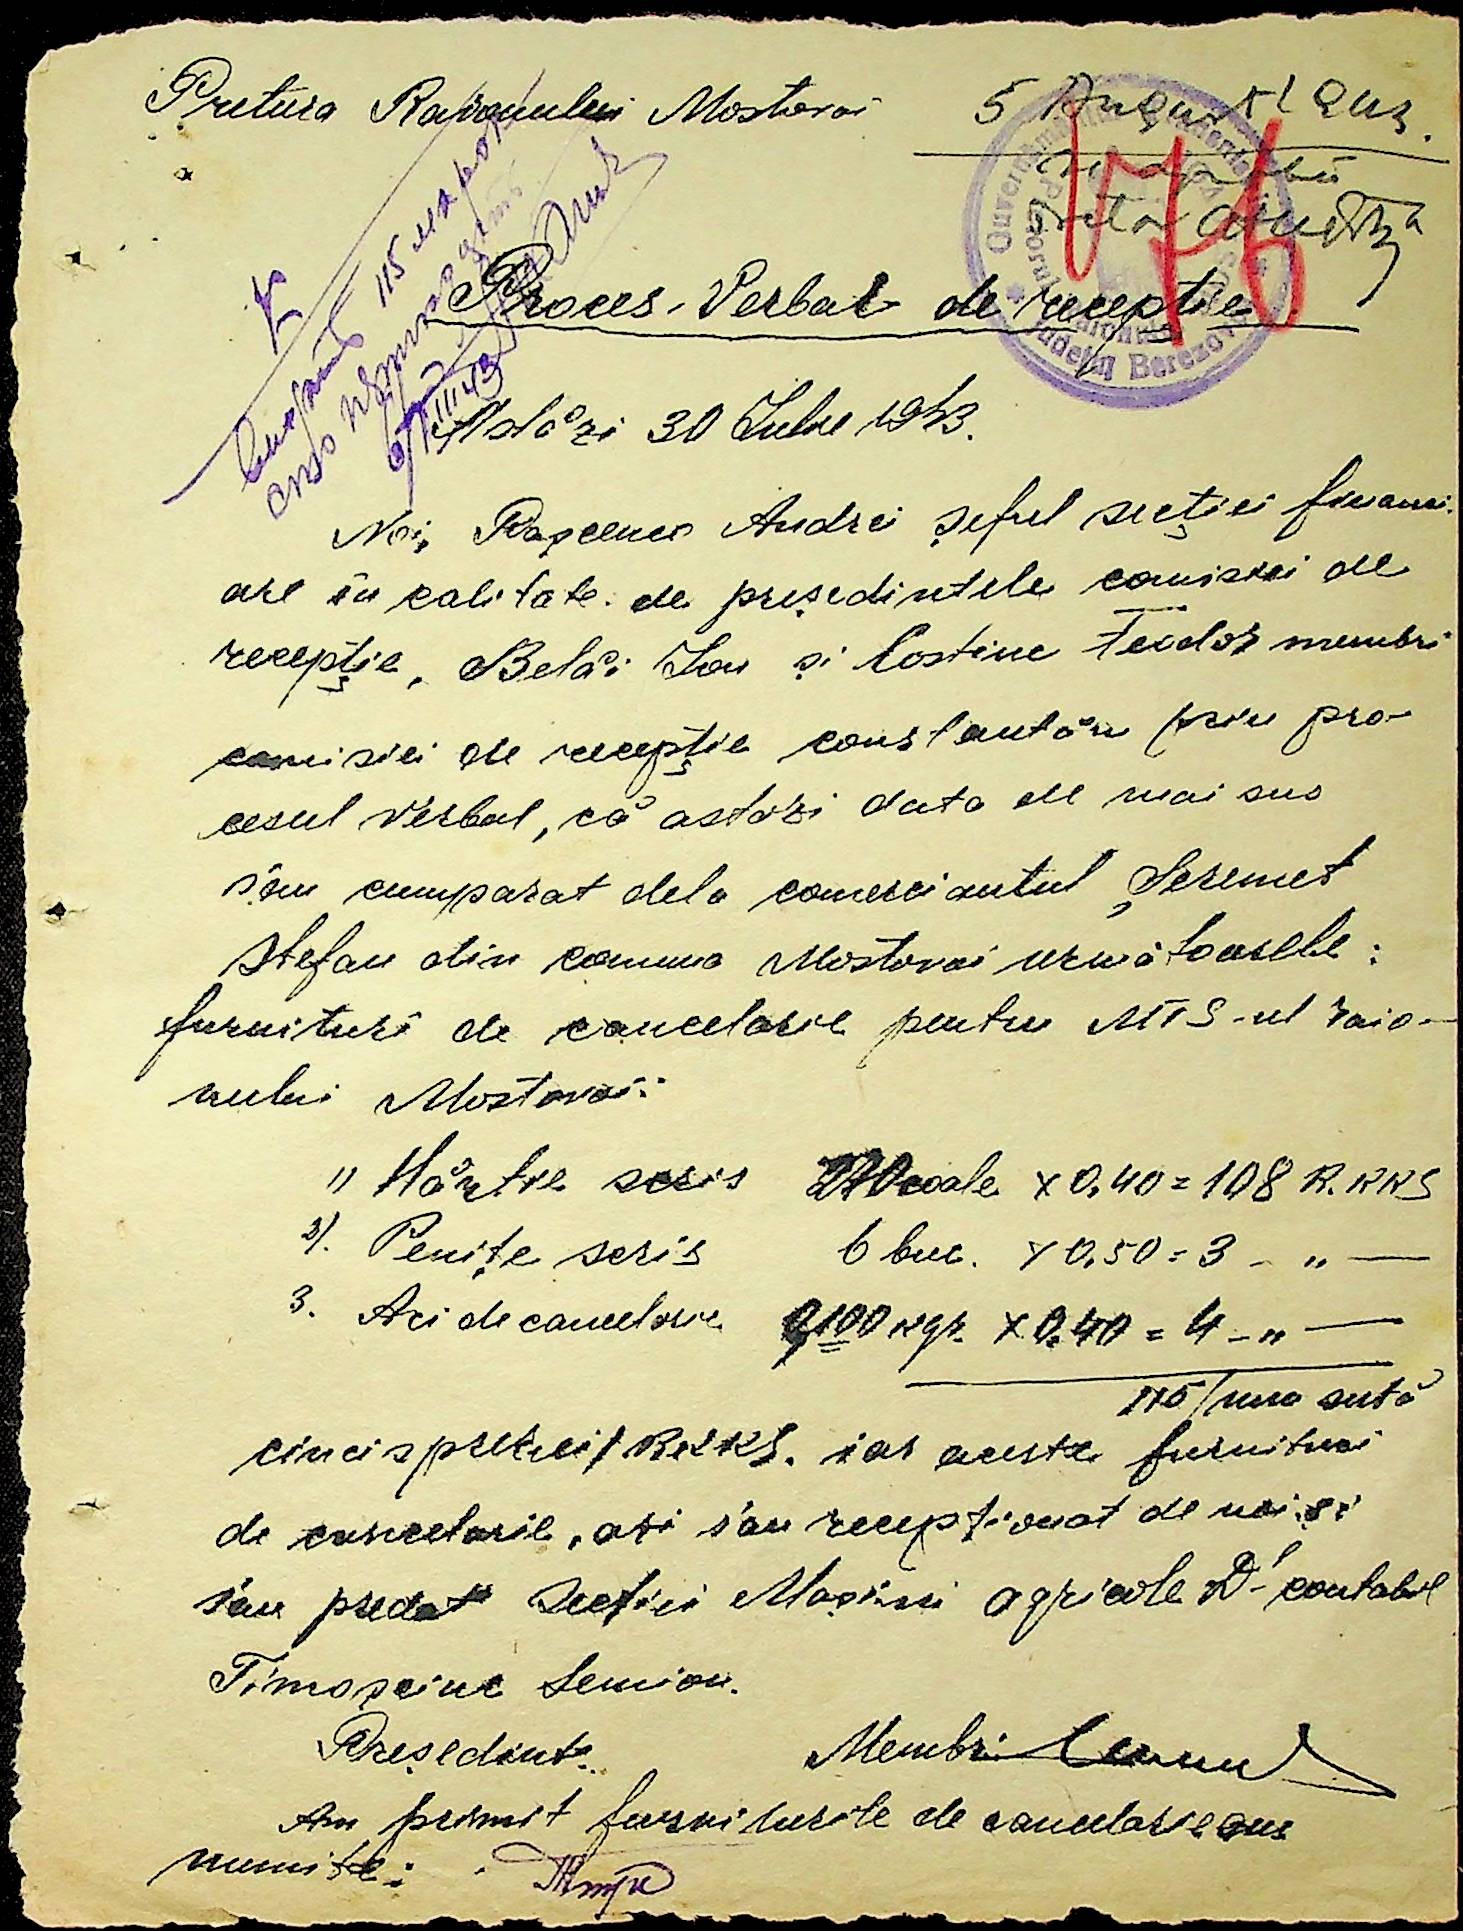 Pretura Raionului Mostovoi
5 August 943.
Proces-Verbal de recepție
Astăzi 30 Iulie 1943.
Noi, Andrei șeful secției financi-
are în calitate de președintele comisiei de
recepție, Belăi Ion și Costine Teodor membri
comisiei de recepție constantăm prin pro-
cesul verbal, că astăzi data de mai sus
s'au cumparat dela comerciantul Șeremet
Stefan din comuna Mostovoi următoarele:
furnituri de cancelarie pentru MTS-ul raio-
nului Mostovoi:
1) Hârtie scris 270 coale x 0,40 = 108 R.KKS
2). Penițe scris 6 buc. x 0,50 = 3 - „ —
3. Aci de cancelarie 0,100 kgr. x 0,40 = 4 - „ —
115 / una sută
cincisprezeci / RKKS. iar aceste furnituri
de cancelarie, azi s'au recepționat de noi și
s'au predat Secției Mașini agricole D-l contabil
Timoșeinc Semion.
Președinte
Membri
Am primit furniturile de cancelarie sus
numite:
Guvernământul
Județul Berezovca